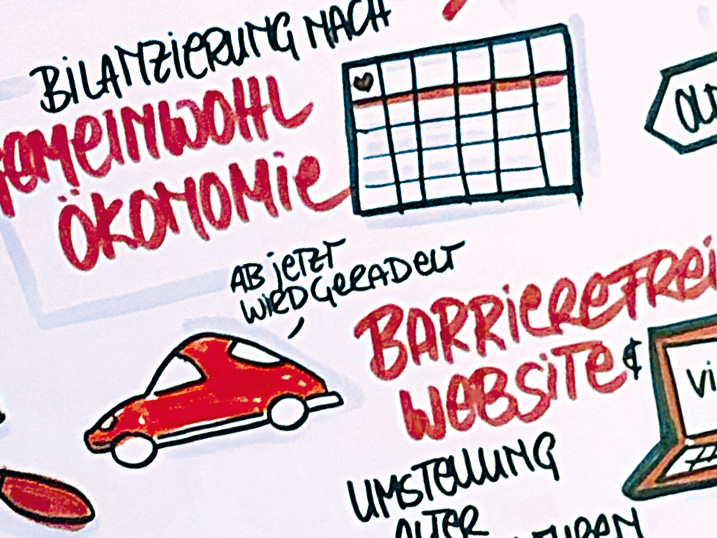 BILANZIERUNG NACH
GEMEINWOHL
ÖKONOMIE
AB JETZT
WIRD GERADELT
BARRIEREFREI
WEBSITE &
UMSTELLUNG
ALTER